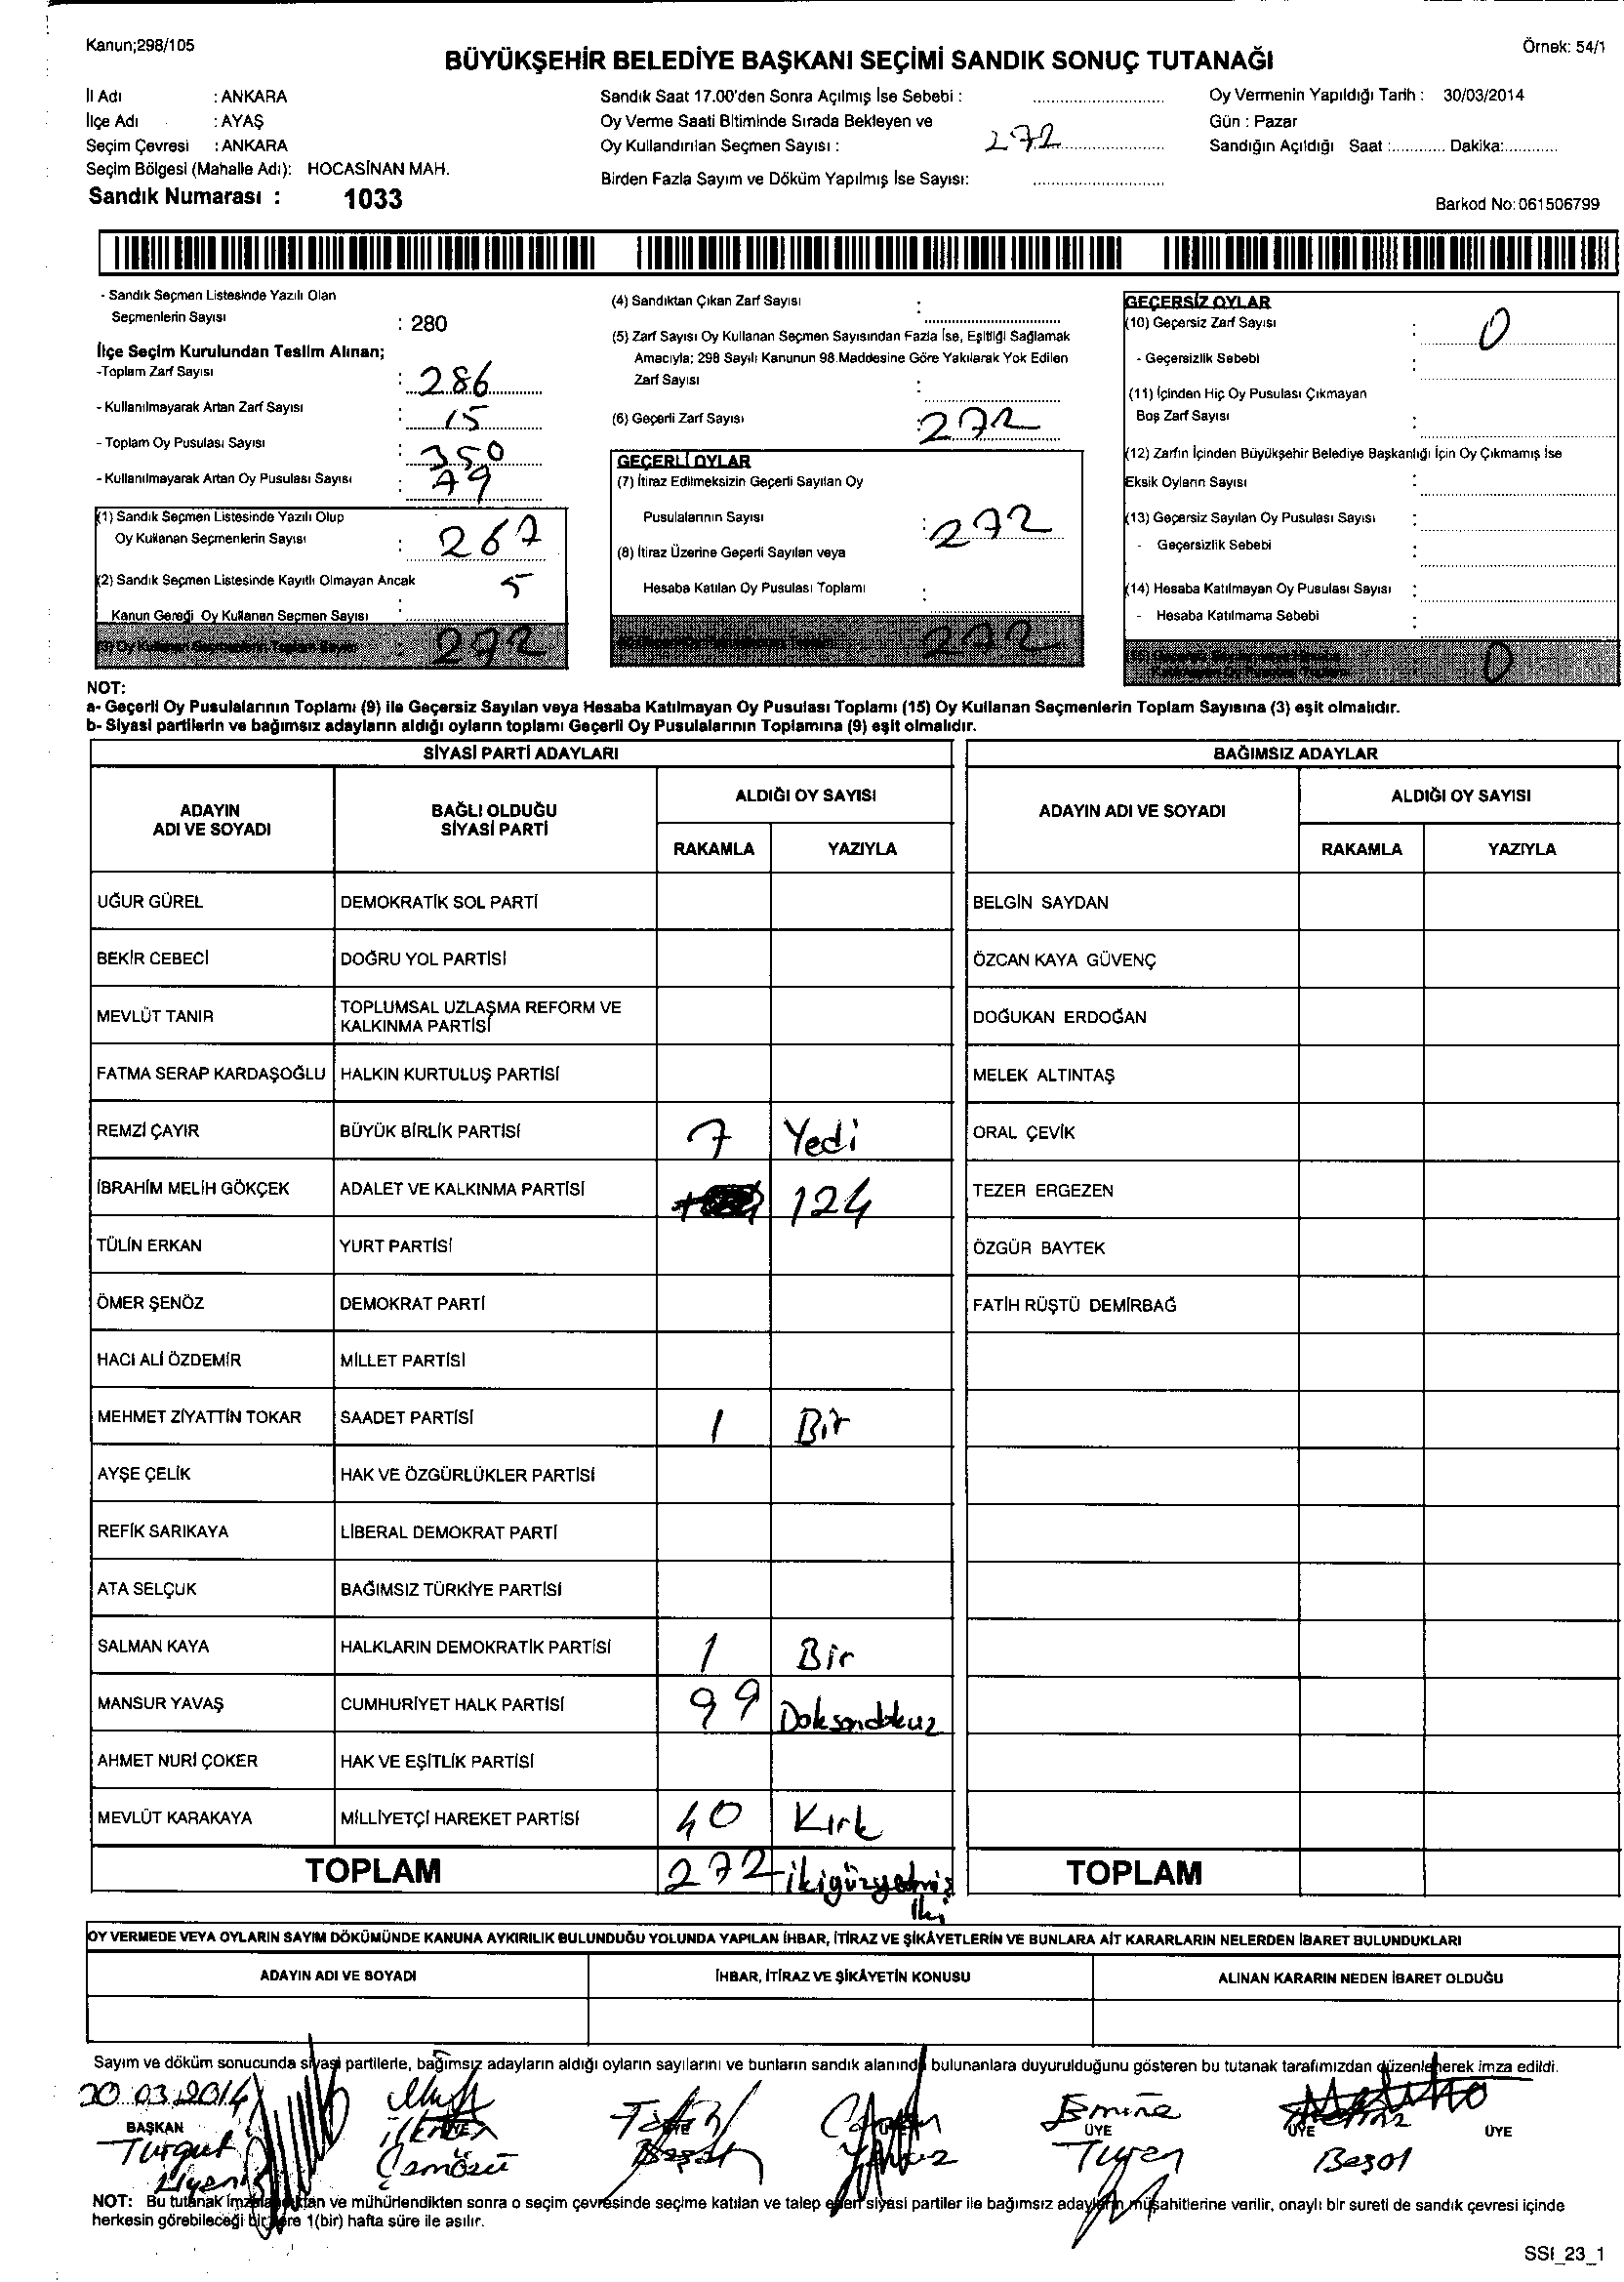 Kanun;298/105
Örnek: 54/1
BÜYÜKŞEHİR BELEDİYE BAŞKANI SEÇİMİ SANDIK SONUÇ TUTANAĞI
İl Adı : ANKARA
İlçe Adı : AYAŞ
Seçim Çevresi : ANKARA
Seçim Bölgesi (Mahalle Adı): HOCASİNAN MAH.
Sandık Numarası : 1033
Sandık Saat 17.00'den Sonra Açılmış İse Sebebi :
Oy Verme Saati Bitiminde Sırada Bekleyen ve
Oy Kullandırılan Seçmen Sayısı : 272
Birden Fazla Sayım ve Döküm Yapılmış İse Sayısı:
Oy Vermenin Yapıldığı Tarih : 30/03/2014
Gün : Pazar
Sandığın Açıldığı Saat :........... Dakika:...........
Barkod No:061506799
- Sandık Seçmen Listesinde Yazılı Olan
Seçmenlerin Sayısı : 280
İlçe Seçim Kurulundan Teslim Alınan;
-Toplam Zarf Sayısı : 286
- Kullanılmayarak Artan Zarf Sayısı : 15
- Toplam Oy Pusulası Sayısı : 350
- Kullanılmayarak Artan Oy Pusulası Sayısı : 79
(1) Sandık Seçmen Listesinde Yazılı Olup
Oy Kullanan Seçmenlerin Sayısı : 267
(2) Sandık Seçmen Listesinde Kayıtlı Olmayan Ancak
Kanun Gereği Oy Kullanan Seçmen Sayısı : 5
(3) Oy Kullanan Seçmenlerin Toplam Sayısı : 272
(4) Sandıktan Çıkan Zarf Sayısı :
(5) Zarf Sayısı Oy Kullanan Seçmen Sayısından Fazla İse, Eşitliği Sağlamak
Amacıyla; 298 Sayılı Kanunun 98.Maddesine Göre Yakılarak Yok Edilen
Zarf Sayısı :
(6) Geçerli Zarf Sayısı : 272
GEÇERLİ OYLAR
(7) İtiraz Edilmeksizin Geçerli Sayılan Oy
Pusulalarının Sayısı : 272
(8) İtiraz Üzerine Geçerli Sayılan veya
Hesaba Katılan Oy Pusulası Toplamı :
272
GEÇERSİZ OYLAR
(10) Geçersiz Zarf Sayısı : 0
- Geçersizlik Sebebi :
(11) İçinden Hiç Oy Pusulası Çıkmayan
Boş Zarf Sayısı :
(12) Zarfın İçinden Büyükşehir Belediye Başkanlığı İçin Oy Çıkmamış İse
Eksik Oyların Sayısı :
(13) Geçersiz Sayılan Oy Pusulası Sayısı :
- Geçersizlik Sebebi :
(14) Hesaba Katılmayan Oy Pusulası Sayısı :
- Hesaba Katılmama Sebebi :
0
NOT:
a- Geçerli Oy Pusulalarının Toplamı (9) ile Geçersiz Sayılan veya Hesaba Katılmayan Oy Pusulası Toplamı (15) Oy Kullanan Seçmenlerin Toplam Sayısına (3) eşit olmalıdır.
b- Siyasi partilerin ve bağımsız adayların aldığı oyların toplamı Geçerli Oy Pusulalarının Toplamına (9) eşit olmalıdır.
SİYASİ PARTİ ADAYLARI
ADAYIN ADI VE SOYADI BAĞLI OLDUĞU SİYASİ PARTİ ALDIĞI OY SAYISI
RAKAMLA YAZIYLA
UĞUR GÜREL DEMOKRATİK SOL PARTİ
BEKİR CEBECİ DOĞRU YOL PARTİSİ
MEVLÜT TANIR TOPLUMSAL UZLAŞMA REFORM VE
KALKINMA PARTİSİ
FATMA SERAP KARDAŞOĞLU HALKIN KURTULUŞ PARTİSİ
REMZİ ÇAYIR BÜYÜK BİRLİK PARTİSİ 7 Yedi
İBRAHİM MELİH GÖKÇEK ADALET VE KALKINMA PARTİSİ 124
TÜLİN ERKAN YURT PARTİSİ
ÖMER ŞENÖZ DEMOKRAT PARTİ
HACI ALİ ÖZDEMİR MİLLET PARTİSİ
MEHMET ZİYATTİN TOKAR SAADET PARTİSİ 1 Bir
AYŞE ÇELİK HAK VE ÖZGÜRLÜKLER PARTİSİ
REFİK SARIKAYA LİBERAL DEMOKRAT PARTİ
ATA SELÇUK BAĞIMSIZ TÜRKİYE PARTİSİ
SALMAN KAYA HALKLARIN DEMOKRATİK PARTİSİ 1 Bir
MANSUR YAVAŞ CUMHURİYET HALK PARTİSİ 99 Doksandokuz
AHMET NURİ ÇOKER HAK VE EŞİTLİK PARTİSİ
MEVLÜT KARAKAYA MİLLİYETÇİ HAREKET PARTİSİ 40 Kırk
TOPLAM 272 ikiyüzyetmiş
iki
BAĞIMSIZ ADAYLAR
ADAYIN ADI VE SOYADI ALDIĞI OY SAYISI
RAKAMLA YAZIYLA
BELGİN SAYDAN
ÖZCAN KAYA GÜVENÇ
DOĞUKAN ERDOĞAN
MELEK ALTINTAŞ
ORAL ÇEVİK
TEZER ERGEZEN
ÖZGÜR BAYTEK
FATİH RÜŞTÜ DEMİRBAĞ
TOPLAM
OY VERMEDE VEYA OYLARIN SAYIM DÖKÜMÜNDE KANUNA AYKIRILIK BULUNDUĞU YOLUNDA YAPILAN İHBAR, İTİRAZ VE ŞİKÂYETLERİN VE BUNLARA AİT KARARLARIN NELERDEN İBARET BULUNDUKLARI
ADAYIN ADI VE SOYADI İHBAR, İTİRAZ VE ŞİKÂYETİN KONUSU ALINAN KARARIN NEDEN İBARET OLDUĞU
Sayım ve döküm sonucunda siyasi partilerle, bağımsız adayların aldığı oyların sayılarını ve bunların sandık alanında bulunanlara duyurulduğunu gösteren bu tutanak tarafımızdan düzenlenerek imza edildi.
30.03.2014
BAŞKAN ÜYE ÜYE ÜYE
Turgut
Emine
Turen
Beşol
NOT: Bu tutanak imzalandıktan ve mühürlendikten sonra o seçim çevresinde seçime katılan ve talep eden siyasi partiler ile bağımsız adayların müşahitlerine verilir, onaylı bir sureti de sandık çevresi içinde
herkesin görebileceği bir yere 1(bir) hafta süre ile asılır.
SSI_23_1